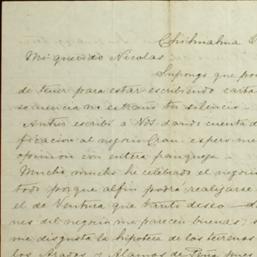 Chihuahua
Mi querido Nicolas.
Supongo que po
de tener para estar escribiendo carta
secuencia no estraño tu silencio.
Antier escribí a Vds dando cuenta d
ficacion al negocio Cran. espero me
opinion con entera franqueza.
Mucho mucho he celebrado el negocio
todo porque alfin podrá realizarse
el de Ventura que tanto deseo
nes del negocio me parecen buenas, s
me disgusta la hipoteca de los terrenos
los Arados y Alamos de Peña pues